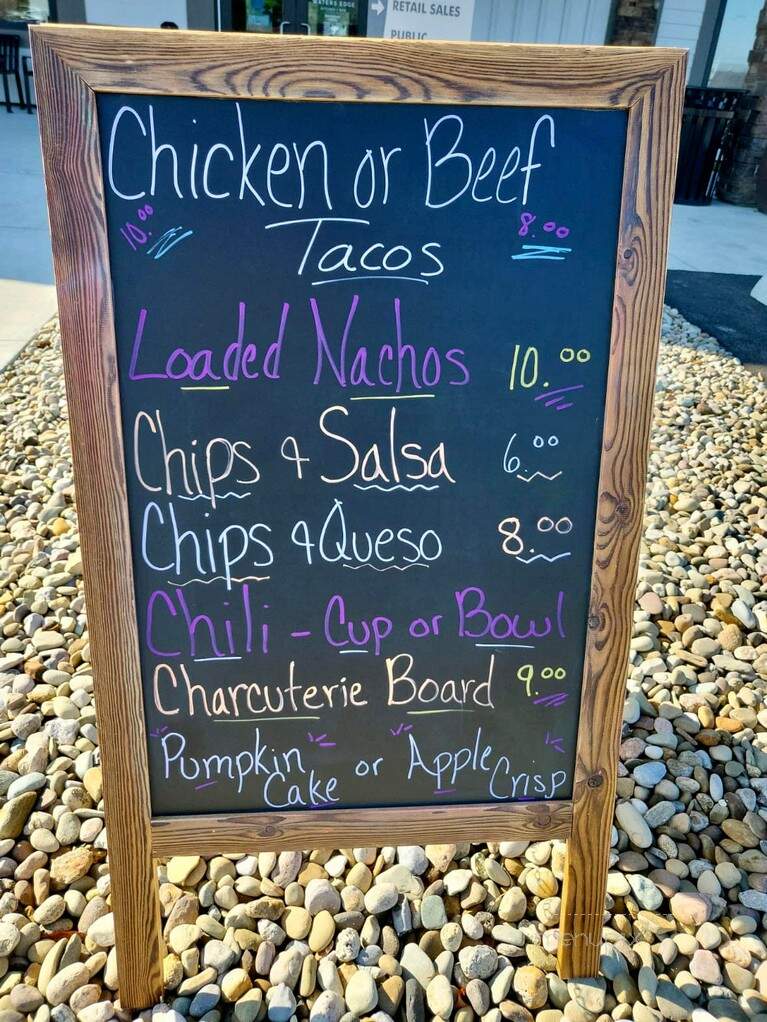 WATERS EDGE
RETAIL SALES
PUBLIC
Chicken or Beef
10.00 8.00
Tacos
Loaded Nachos 10.00
Chips & Salsa 6.00
Chips & Queso 8.00
Chili - Cup or Bowl
Charcuterie Board 9.00
Pumpkin Cake or Apple Crisp